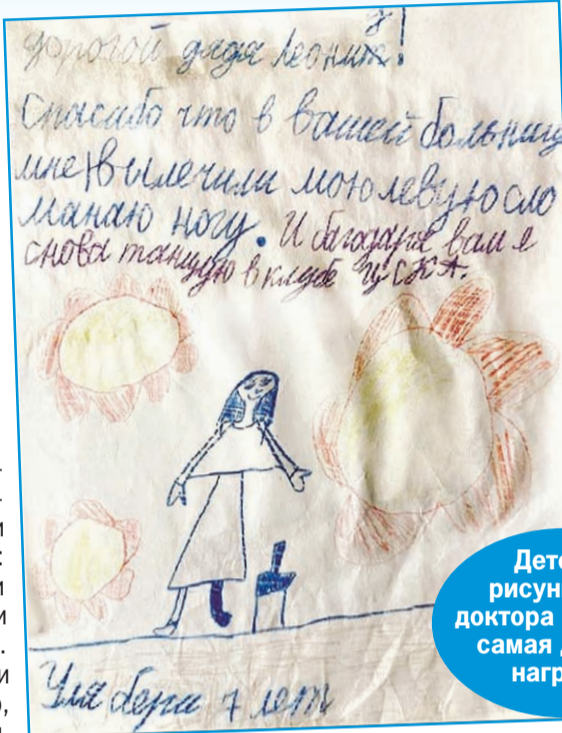 дорогой дядя Леонид!
Спасибо что в вашей больниц
мне вылечили мою левую сло
манаю ногу. И багодаря вам я
снова танцую в клубе ЦСКА.
Уля бера 7 лет
Дете
рисун
доктора
самая
нагр
и
и
и
и